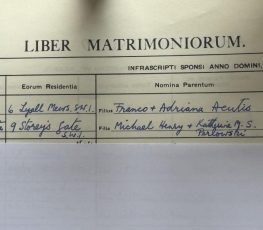 LIBER MATRIMONIORUM.
INFRASCRIPTI SPONSI ANNO DOMINI,
Eorum Residentia Nomina Parentum
6 Lyall Mews, S.W.1. Filius Franco + Adriana Acutis
9 Storey's Gate S.W.1. Filia Michael Henry + Kathyrine M. S. Parlowski